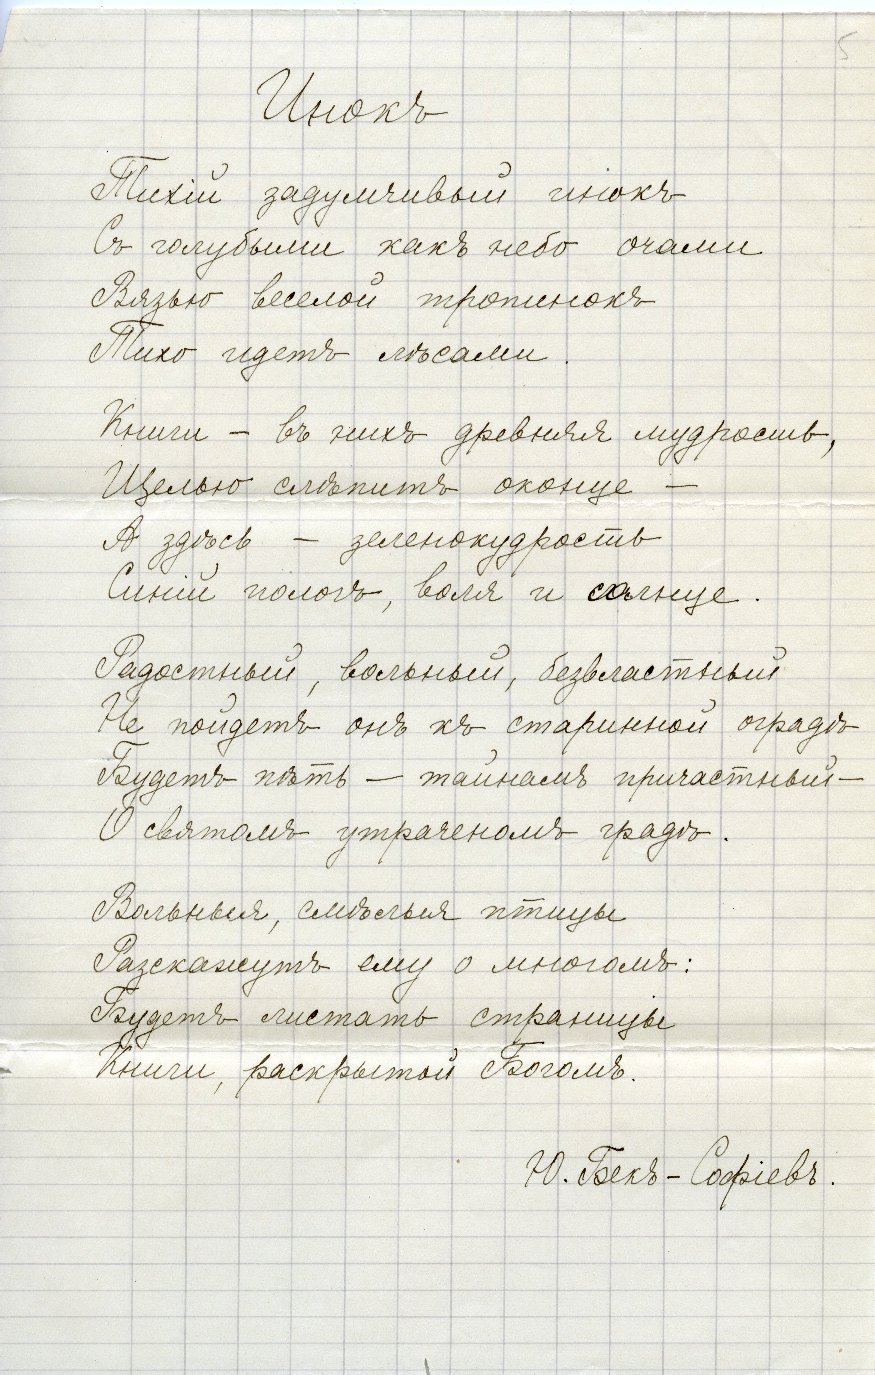 5
Инокъ
Тихій задумчивый инокъ
Съ голубыми какъ небо очами
Вязью веселой тропинокъ
Тихо идетъ лѣсами.
Книги – въ нихъ древняя мудрость,
Щелью слѣпитъ оконце –
А здѣсь – зеленокудрость
Синій пологъ, воля и солнце.
Радостный, вольный, безвластный
Не пойдетъ онъ къ старинной оградѣ
Будетъ пѣть – тайнамъ причастный –
О святомъ утраченомъ градѣ.
Вольныя, смѣлыя птицы
Разскажутъ ему о многомъ:
Будетъ листать страницы
Книги, раскрытой Богомъ.
Ю. Бекъ-Софіевъ.